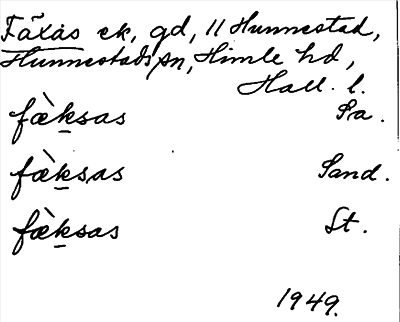 Fäxås ek, gd, 11 Hunnestad,
Hunnestads sn, Himle hd,
Hall. l.
fæ̀ksas Pa.
fæ̀ksas Sand.
fæ̀ksas St.
1949.